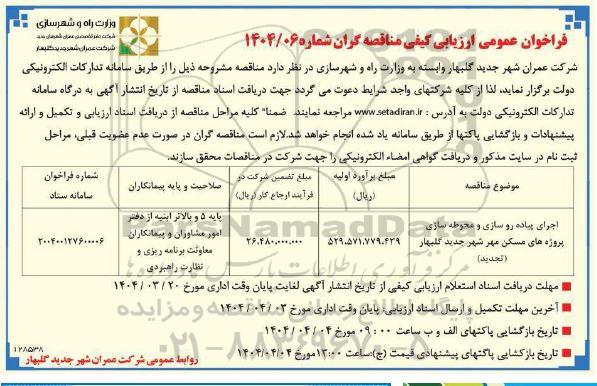 وزارت راه و شهرسازی
شرکت عمران شهر جدید گلبهار
فراخوان عمومی ارزیابی کیفی مناقصه گران شماره ۱۴۰۴/۰۶
شرکت عمران شهر جدید گلبهار وابسته به وزارت راه و شهرسازی در نظر دارد مناقصه مشروحه ذیل را از طریق سامانه تدارکات الکترونیکی
دولت برگزار نماید، لذا از کلیه شرکتهای واجد شرایط دعوت می گردد جهت دریافت اسناد مناقصه از تاریخ انتشار آگهی به درگاه سامانه
تدارکات الکترونیکی دولت به آدرس : www.setadiran.ir مراجعه نمایند. ضمنا" کلیه مراحل مناقصه از دریافت اسناد ارزیابی و تکمیل و ارائه
پیشنهادات و بازگشایی پاکتها از طریق سامانه یاد شده انجام خواهد شد.لازم است مناقصه گران در صورت عدم عضویت قبلی، مراحل
ثبت نام در سایت مذکور و دریافت گواهی امضاء الکترونیکی را جهت شرکت در مناقصات محقق سازند.
موضوع مناقصه
مبلغ برآورد اولیه
(ریال)
مبلغ تضمین شرکت در
فرآیند ارجاع کار (ریال)
صلاحیت و پایه پیمانکاران
شماره فراخوان
سامانه ستاد
اجرای پیاده رو سازی و محوطه سازی
پروژه های مسکن مهر شهر جدید گلبهار
(تجدید)
۵۲۹.۵۷۱.۷۷۹.۴۳۹
۲۶.۴۸۰.۰۰۰.۰۰۰
پایه ۵ و بالاتر ابنیه از دفتر
امور مشاوران و پیمانکاران
معاونت برنامه ریزی و
نظارت راهبردی
۲۰۰۴۰۰۱۲۷۶۰۰۰۰۰۶
مهلت دریافت اسناد استعلام ارزیابی کیفی از تاریخ انتشار آگهی لغایت پایان وقت اداری مورخ ۲۰ / ۰۳ / ۱۴۰۴
آخرین مهلت تکمیل و ارسال اسناد ارزیابی، پایان وقت اداری مورخ ۰۳ / ۰۴ / ۱۴۰۴
تاریخ بازگشایی پاکتهای الف و ب ساعت ۰۹:۰۰ مورخ ۰۴ / ۰۴ / ۱۴۰۴
تاریخ بازگشایی پاکتهای پیشنهادی قیمت (ج):ساعت ۱۳:۰۰ مورخ ۱۴۰۴/۰۴/۰۴
روابط عمومی شرکت عمران شهر جدید گلبهار
۱۲۸۵۳۸
۰۲۱-۸۸۳۴۹۶۷۰-۵